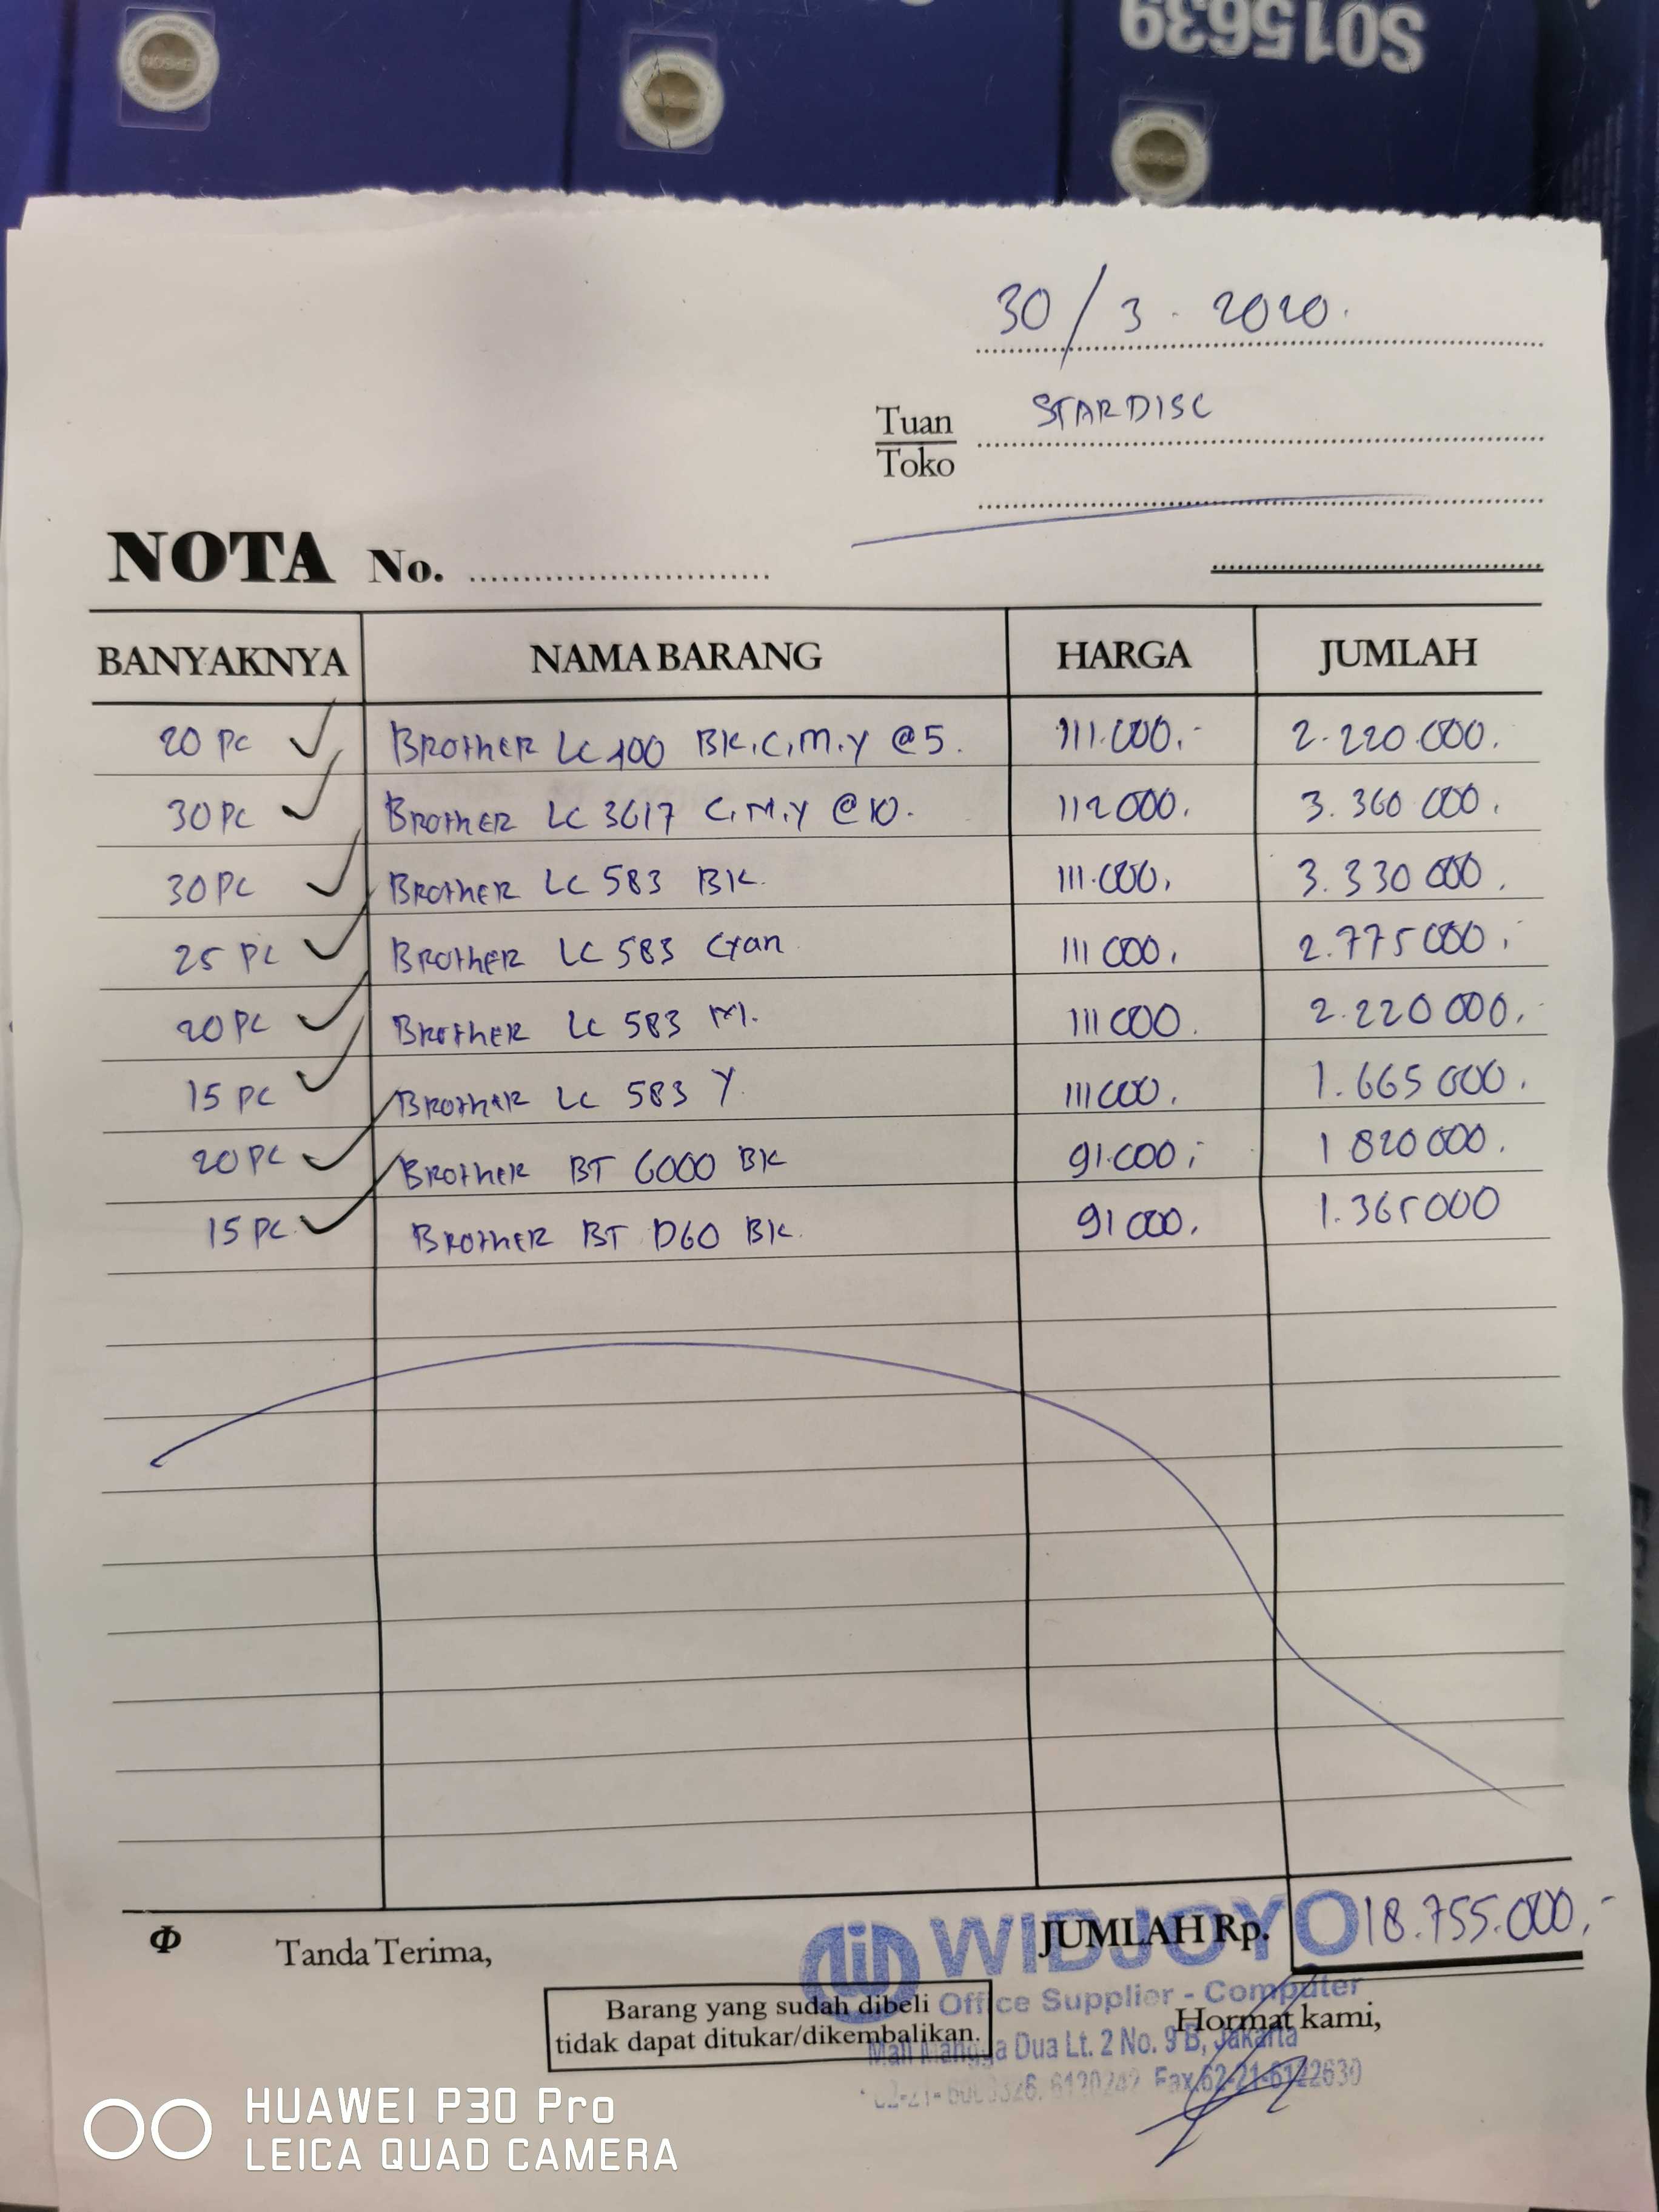 S015639
30/3.2020.
Tuan STARDISC
Toko
NOTA No.
BANYAKNYA NAMA BARANG HARGA JUMLAH
20 PC BROTHER LC 400 BK,C,M,Y @5. 111.000,- 2.220.000.
30 PC BROTHER LC 3617 C,M,Y @10. 112000. 3.360 000.
30 PC BROTHER LC 583 BK. 111.000, 3.330 000.
25 PC BROTHER LC 583 Cyan 111 000, 2.775 000,
20 PC BROTHER LC 583 M. 111 000. 2.220 000,
15 PC BROTHER LC 583 Y. 111 000. 1.665 000.
20 PC BROTHER BT 6000 BK 91.000, 1 820 000.
15 PC BROTHER BT D60 BK. 91 000. 1.365 000
JUMLAH Rp. 18.755.000,-
Φ Tanda Terima,
WIDJOYO
Office Supplier - Computer
Mall Mangga Dua Lt. 2 No. 9 B, Jakarta
Fax.62-21-6122630
Barang yang sudah dibeli
tidak dapat ditukar/dikembalikan.
Hormat kami,
HUAWEI P30 Pro
LEICA QUAD CAMERA